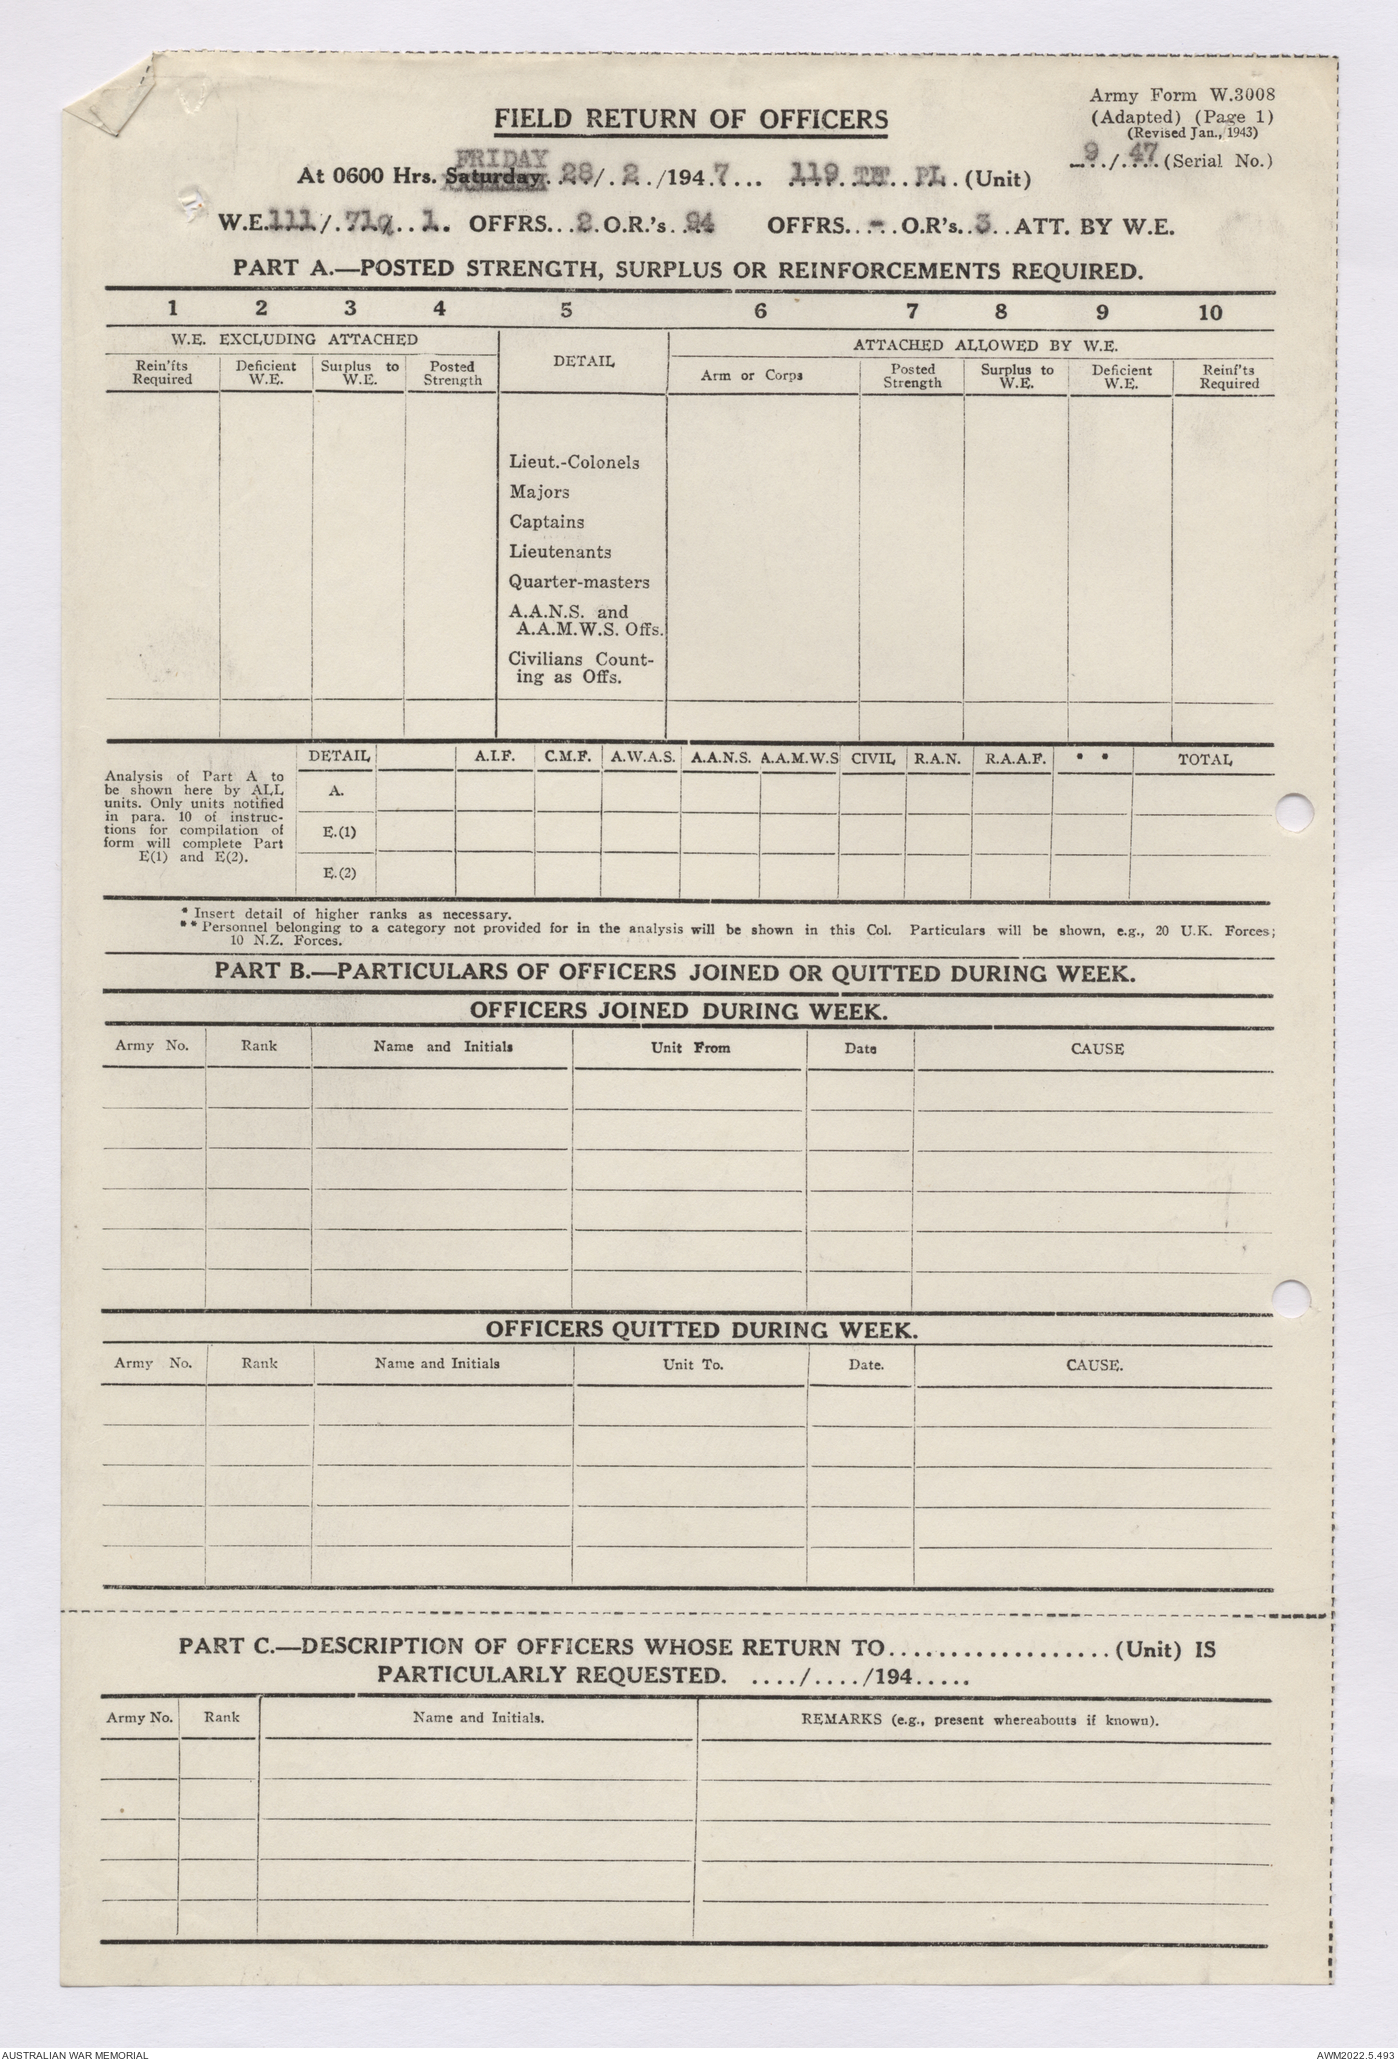 Army Form W.3008
(Adapted) (Page 1)
(Revised Jan., 1943)
9/.47 (Serial No.)
FIELD RETURN OF OFFICERS
FRIDAY
At 0600 Hrs. Saturday 28/.2./194.7... 119 PL.(Unit)
W.E.111/. 1. OFFRS...2.O.R.'s..94 OFFRS..-.O.R's..3..ATT. BY W.E.
PART A.—POSTED STRENGTH, SURPLUS OR REINFORCEMENTS REQUIRED.
1 2 3 4 5 6 7 8 9 10
W.E. EXCLUDING ATTACHED DETAIL ATTACHED ALLOWED BY W.E.
Rein'fts Required Deficient W.E. Surplus to W.E. Posted Strength Arm or Corps Posted Strength Surplus to W.E. Deficient W.E. Reinf'ts Required
Lieut.-Colonels
Majors
Captains
Lieutenants
Quarter-masters
A.A.N.S. and
A.A.M.W.S. Offs.
Civilians Count-
ing as Offs.
DETAIL A.I.F. C.M.F. A.W.A.S. A.A.N.S. A.A.M.W.S CIVIL R.A.N. R.A.A.F. * * TOTAL
Analysis of Part A to
be shown here by ALL
units. Only units notified
in para. 10 of instruc-
tions for compilation of
form will complete Part
E(1) and E(2).
A.
E.(1)
E.(2)
* Insert detail of higher ranks as necessary.
** Personnel belonging to a category not provided for in the analysis will be shown in this Col. Particulars will be shown, e.g., 20 U.K. Forces;
10 N.Z. Forces.
PART B.—PARTICULARS OF OFFICERS JOINED OR QUITTED DURING WEEK.
OFFICERS JOINED DURING WEEK.
Army No. Rank Name and Initials Unit From Date CAUSE
OFFICERS QUITTED DURING WEEK.
Army No. Rank Name and Initials Unit To. Date. CAUSE.
PART C.—DESCRIPTION OF OFFICERS WHOSE RETURN TO...................(Unit) IS
PARTICULARLY REQUESTED. ..../..../194.....
Army No. Rank Name and Initials. REMARKS (e.g., present whereabouts if known).
AUSTRALIAN WAR MEMORIAL AWM2022.5.493